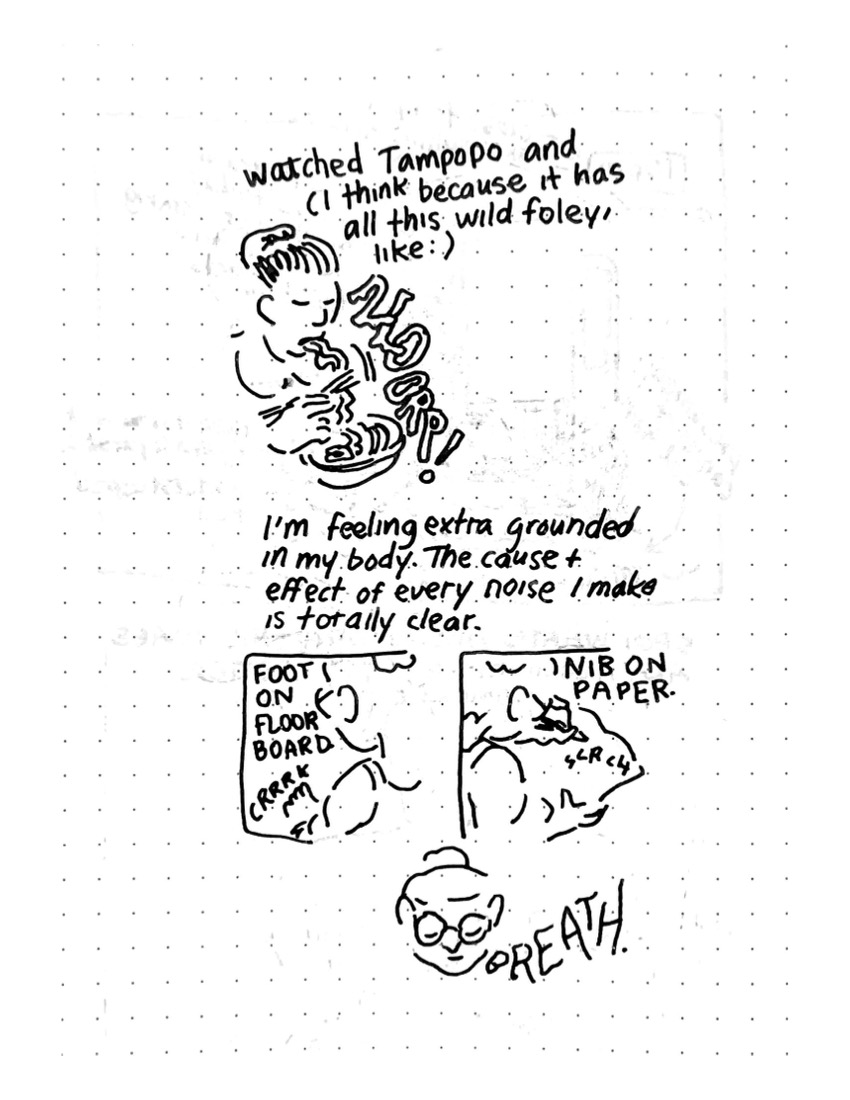 watched Tampopo and
(I think because it has
all this wild foley,
like:)
I'm feeling extra grounded
in my body. The cause +
effect of every noise I make
is totally clear.
FOOT
ON
FLOOR
BOARD.
CRRRK
NIB ON
PAPER.
SCRCH
BREATH.